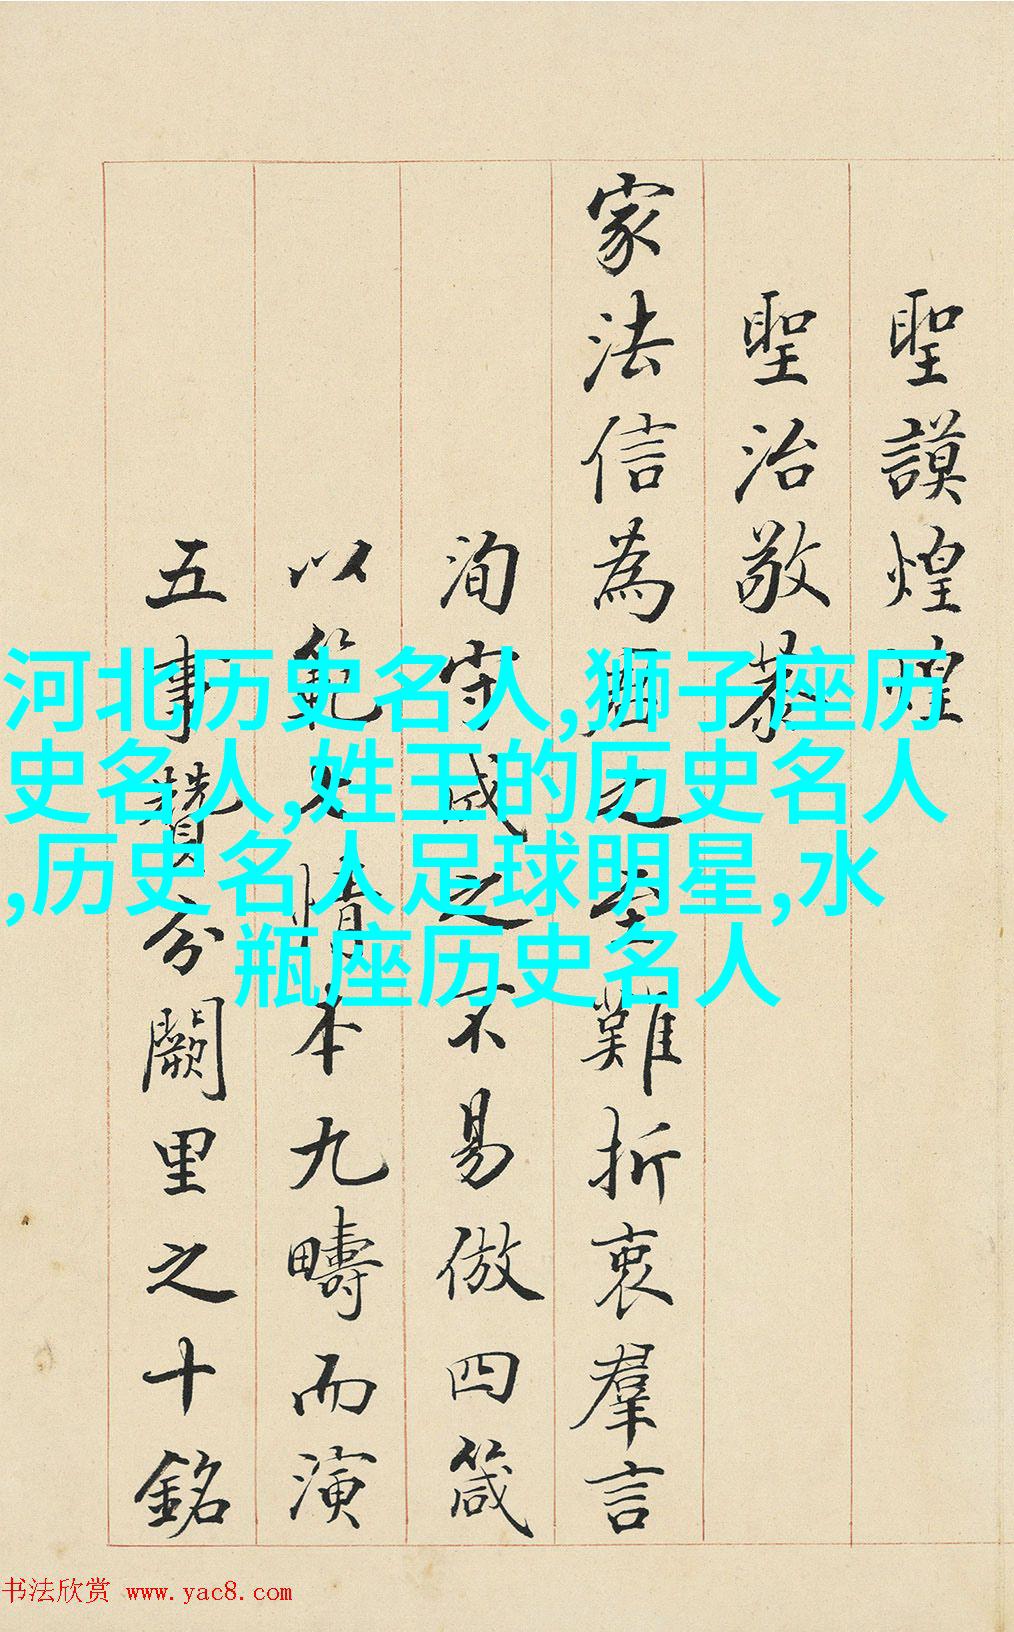 聖謨煌煌
聖治敬恭
家法信為君之至難折衷羣言
洵守成之不易倣四箴
以範文情本九疇而演
五事贊分闕里之十銘
河北历史名人,狮子座历
史名人,姓王的历史名人
,历史名人足球明星,水
瓶座历史名人
书法欣赏 www.yac8.com